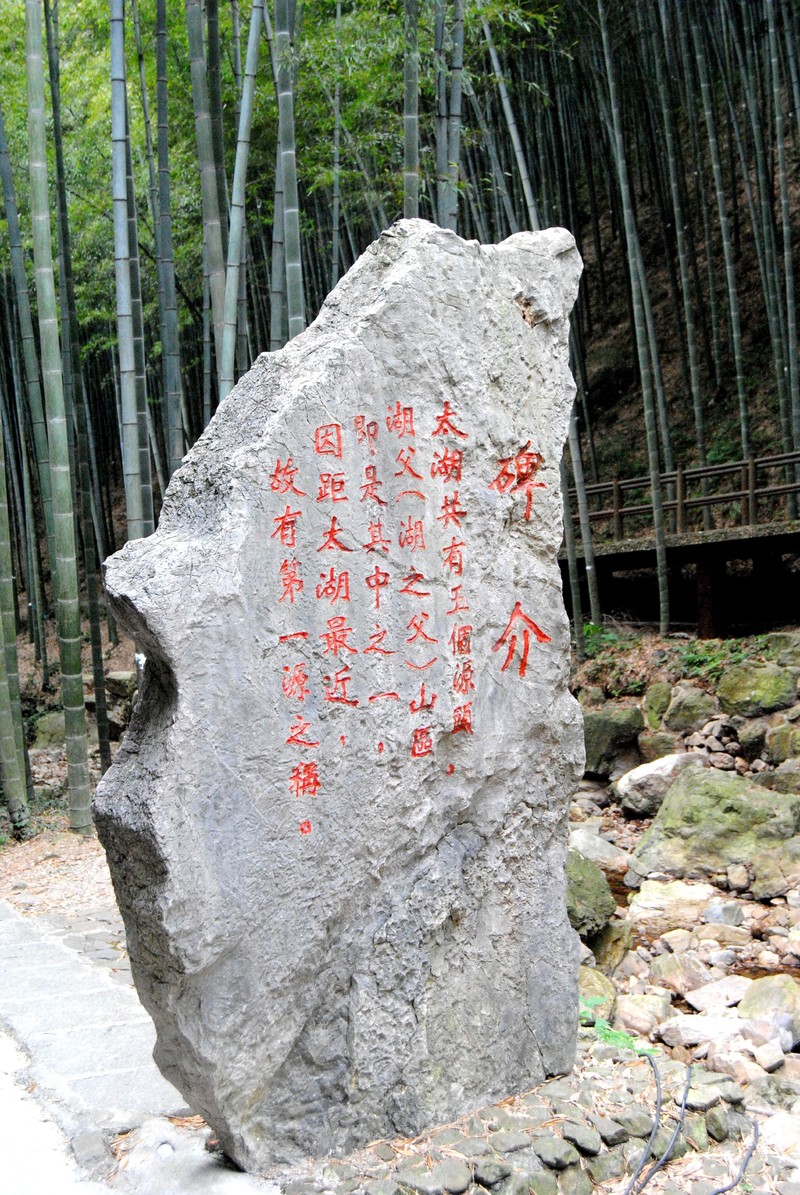 碑介
太湖共有五個源頭，
湖父（湖之父）山區
即是其中之一，
因距太湖最近，
故有第一源之稱。